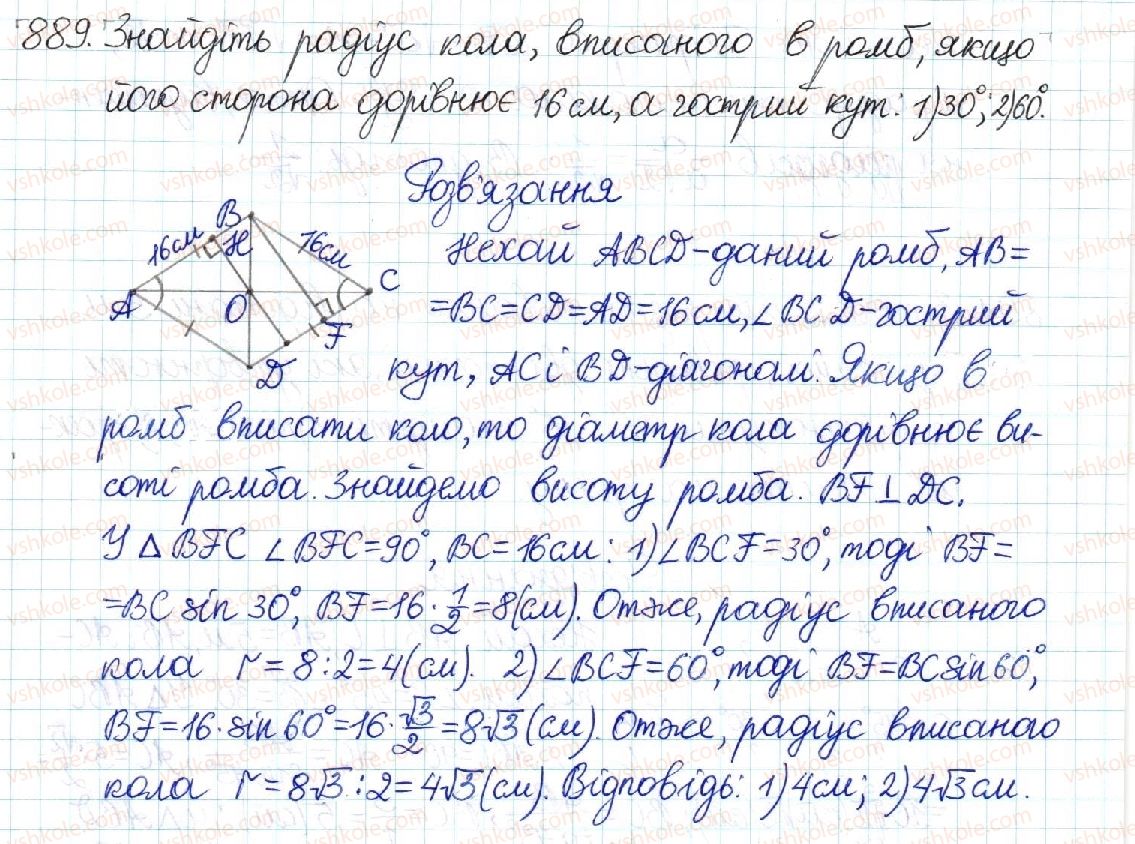 889. Знайдіть радіус кола, вписаного в ромб, якщо
його сторона дорівнює 16 см, а гострий кут: 1) 30°; 2) 60°.
Розв'язання
B
16см H 16см
A O C
F
D
Нехай ABCD-даний ромб, AB=
=BC=CD=AD=16см, ∠BCD-гострий
кут, AC і BD-діагоналі. Якщо в
ромб вписати коло, то діаметр кола дорівнює ви-
соті ромба. Знайдемо висоту ромба. BF⊥DC.
У △BFC ∠BFC=90°, BC=16см: 1) ∠BCF=30°, тоді BF=
=BC sin 30°, BF=16·1/2=8(см). Отже, радіус вписаного
кола r=8:2=4(см). 2) ∠BCF=60°, тоді BF=BC sin 60°,
BF=16·sin 60°=16·√3/2=8√3(см). Отже, радіус вписаного
кола r=8√3:2=4√3(см). Відповідь: 1) 4см; 2) 4√3см.